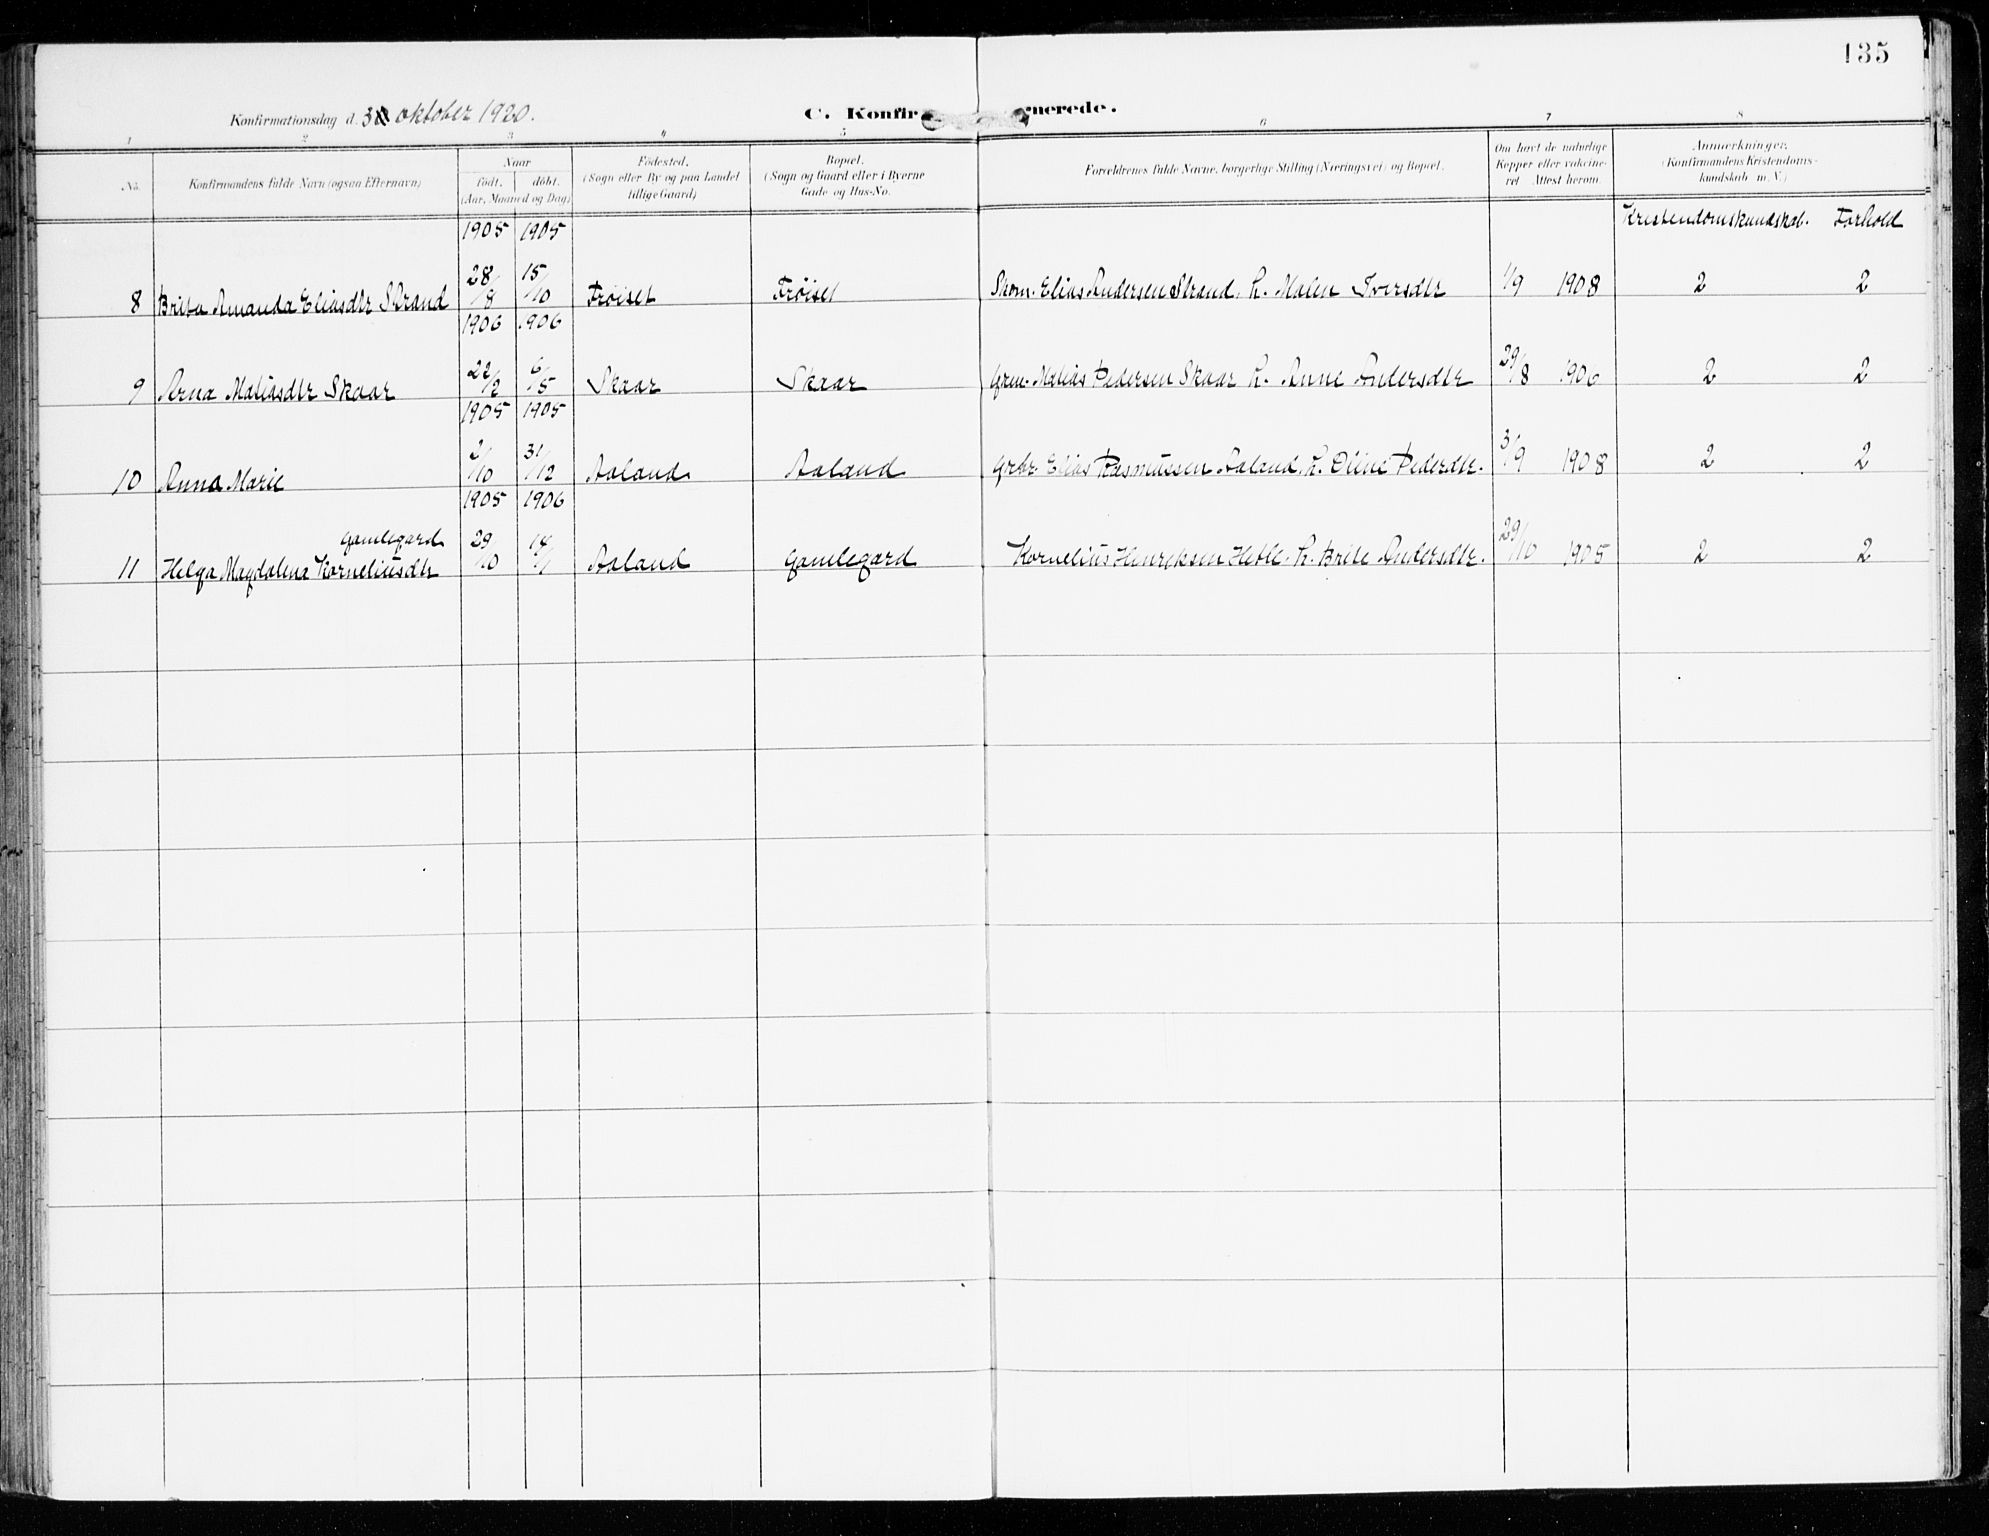 135
Konfirmationsdag d. 3 oktober 1920. C. Konfir merede.
1 2 3 4 5 6 7 8
No. Konfirmandens fulde Navn (ogsaa Efternavn) Naar født. døbt. (Aar, Maaned og Dag) Fødested. (Sogn eller By og paa Landet tillige Gaard) Bopæl. (Sogn og Gaard eller i Byerne Gade og Hus-No. Forældrenes fulde Navne, borgerlige Stilling (Næringsvei) og Bopæl. Om havt de naturlige Kopper eller vakcineret. Attest herom. Anmærkninger. (Konfirmandens Kristendomskundskab m. V.)
Kristendomskundskab. Forhold
1905 1905
8 Brita Amanda Eliasdtr Strand 28/8 15/10 Frøiset Frøiset Skom. Elias Andersen Strand. h. Malen Iversdtr 1/9 1908 2 2
1906 1906
9 Arna Matiasdtr Skaar 22/2 6/5 Skaar Skaar Grm. Matias Pedersen Skaar h. Anne Andersdtr 29/8 1906 2 2
1905 1905
10 Anna Marie 2/10 31/12 Aaland Aaland Grbr. Elias Rasmussen Aaland. h. Oline Pedersdtr. 3/9 1908 2 2
1905 1906
Gamlegard
11 Helga Magdalena Korneliusdtr 29/10 14/1 Aaland Gamlegard Kornelius Henriksen Hetle. h. Brite Andersdtr. 29/10 1905 2 2